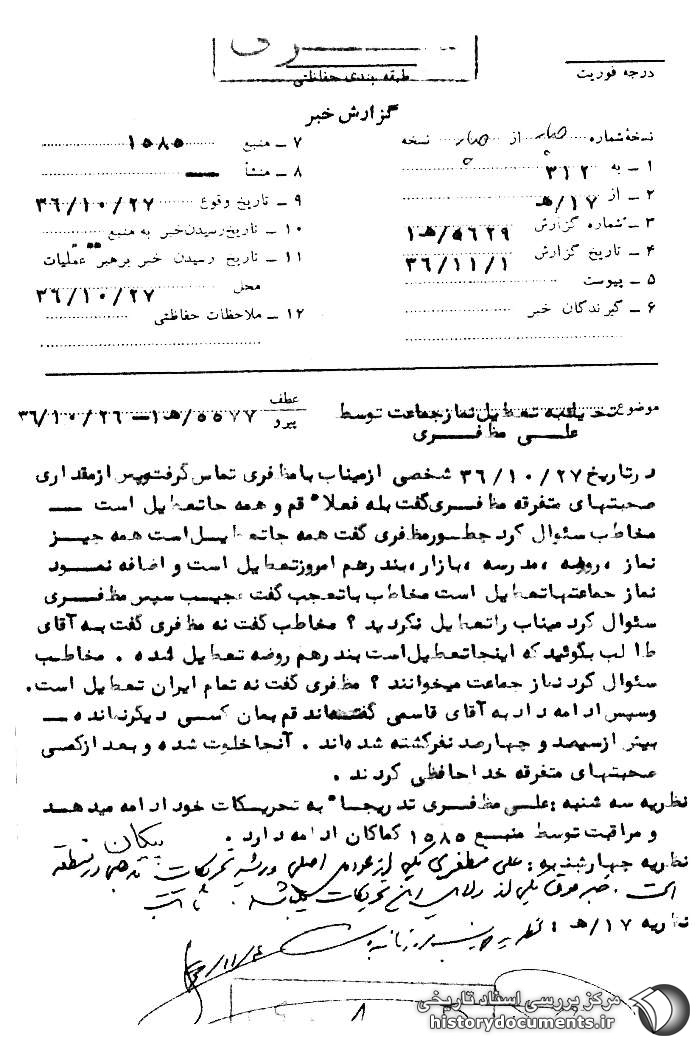 سری
طبقه بندی حفاظتی
درجه فوریت
گزارش خبر
نسخهٔ شماره چهار از چهار نسخه
۱ ـ به ۳۱۲
۲ ـ از ۱۷/هـ
۳ ـ شماره گزارش ۵۶۲۹/هـ۱
۴ ـ تاریخ گزارش ۳۶/۱۱/۱
۵ ـ پیوست
۶ ـ گیرندگان خبر
۷ ـ منبع ۱۵۸۵
۸ ـ منشأ
۹ ـ تاریخ وقوع ۳۶/۱۰/۲۷
۱۰ ـ تاریخ رسیدن خبر به منبع
۱۱ ـ تاریخ رسیدن خبر برهبر عملیات
محل ۳۶/۱۰/۲۷
۱۲ ـ ملاحظات حفاظتی
موضوع تعطیل نماز جماعت توسط
علی مظفری
عطف
پیرو ۵۵۷۷/هـ۱ـ ۳۶/۱۰/۲۶
در تاریخ ۳۶/۱۰/۲۷ شخصی از میناب با مظفری تماس گرفت و پس از مقداری
صحبتهای متفرقه مظفری گفت بله فعلاً قم و همه جا تعطیل است ـ
مخاطب سئوال کرد چطور مظفری گفت همه جا تعطیل است همه چیز
نماز ، روضه ، مدرسه ، بازار ، بندر هم امروز تعطیل است و اضافه نمود
نماز جماعتها تعطیل است مخاطب با تعجب گفت عجیب سپس مظفری
سئوال کرد میناب را تعطیل نکردید ؟ مخاطب گفت نه مظفری گفت به آقای
طالب بگوئید که اینجا تعطیل است بندر هم روضه تعطیل شده . مخاطب
سئوال کرد نماز جماعت میخوانند ؟ مظفری گفت نه تمام ایران تعطیل است.
وسپس ادامه داد به آقای قاسمی گفته‌اند قم بمان کسی دیگر نمانده ـ
بیش از سیصد و چهارصد نفر کشته شده‌اند . آنجا خلوت شده و بعد از کمی
صحبتهای متفرقه خداحافظی کردند .
نظریه سه شنبه : علی مظفری تدریجاً به تحریکات خود ادامه میدهد
و مراقبت توسط منبع ۱۵۸۵ کماکان ادامه دارد . پیکان
نظریه چهارشنبه : علی مظفری یکی از عوامل اصلی و ریشه تحریکات مذهبی در منطقه
است . خبر فوق یکی از دلایل این تحریکات میباشد .
نظریه ۱۷/هـ :
۸
مرکز بررسی اسناد تاریخی
historydocuments.ir